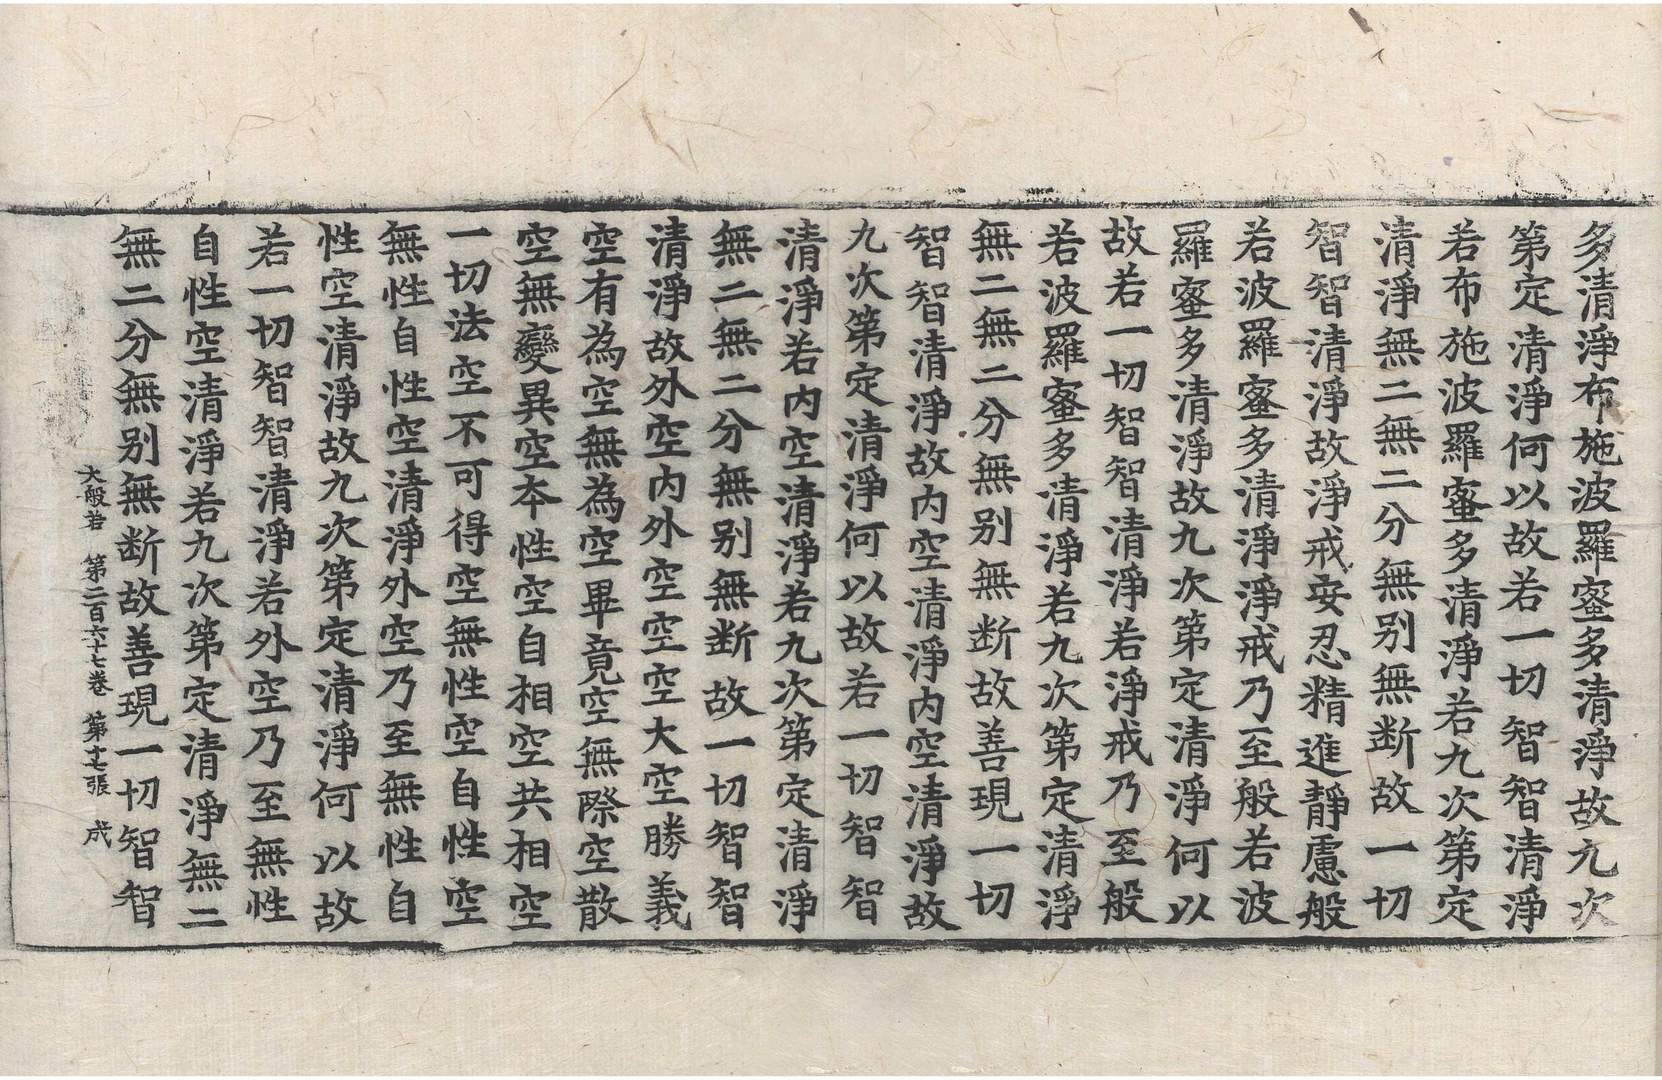 多清淨布施波羅蜜多清淨故九次
第定清淨何以故若一切智智清淨
若布施波羅蜜多清淨若九次第定
清淨無二無二分無别無断故一切
智智清淨故淨戒安忍精進靜慮般
若波羅蜜多清淨淨戒乃至般若波
羅蜜多清淨故九次第定清淨何以
故若一切智智清淨若淨戒乃至般
若波羅蜜多清淨若九次第定清淨
無二無二分無别無断故善現一切
智智清淨故内空清淨内空清淨故
九次第定清淨何以故若一切智智
清淨若内空清淨若九次第定清淨
無二無二分無别無断故一切智智
清淨故外空内外空空空大空勝義
空有為空無為空畢竟空無際空散
空無變異空夲性空自相空共相空
一切法空不可得空無性空自性空
無性自性空清淨外空乃至無性自
性空清淨故九次第定清淨何以故
若一切智智清淨若外空乃至無性
自性空清淨若九次第定清淨無二
無二分無别無断故善現一切智智
大般若 第二百六十七卷 第十七張 成